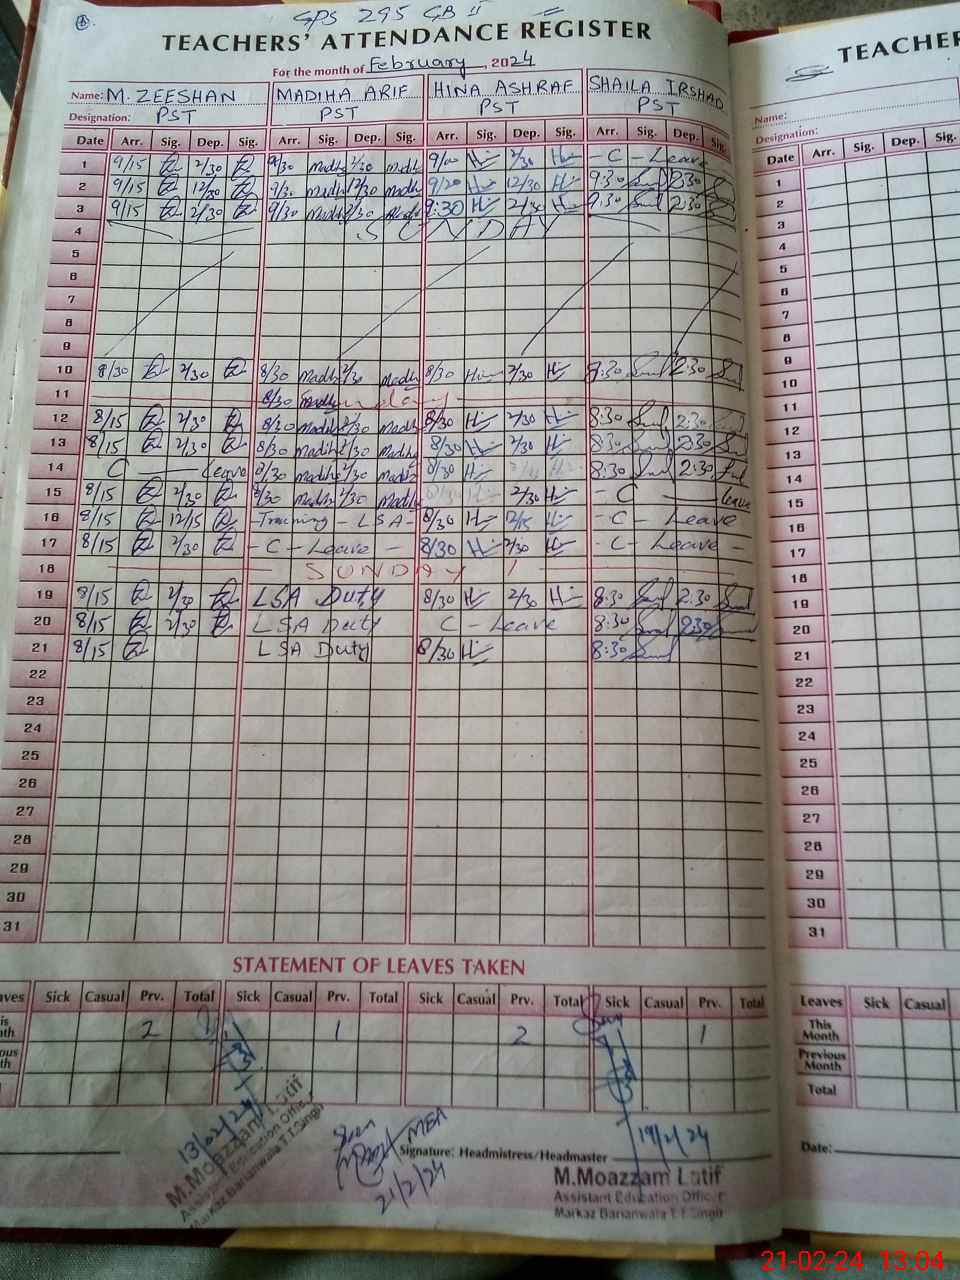 GPS 295 GB II
TEACHERS' ATTENDANCE REGISTER
For the month of February, 2024
Name: M. ZEESHAN MADIHA ARIF HINA ASHRAF SHAILA IRSHAD
Designation: PST PST PST PST
Date Arr. Sig. Dep. Sig. Arr. Sig. Dep. Sig. Arr. Sig. Dep. Sig. Arr. Sig. Dep. Sig.
1 9/15 2/30 9/30 2/30 9/00 2/30 - C - Leave
2 9/15 12/30 9/30 12/30 9/20 12/30 9:30 2:30
3 9/15 2/30 9/30 2/30 9:30 2/30 9:30 2:30
4 SUNDAY
5
6
7
8
9
10 8/30 2/30 8/30 2/30 8/30 2/30 8:30 2:30
11 8/30 Sunday
12 8/15 2/30 8/30 2/30 8/30 2/30 8:30 2:30
13 8/15 2/30 8/30 2/30 8/30 2/30 8:30 2:30
14 C Leave 8/30 2/30 8/30 8:30 2:30
15 8/15 2/30 8/30 2/30 2/30 - C Leave
16 8/15 12/15 - Training - LSA - 8/30 12/15 - C - Leave
17 8/15 2/30 - C - Leave - 8/30 2/30 - C - Leave -
18 SUNDAY
19 8/15 2/30 LSA Duty 8/30 2/30 8:30 2:30
20 8/15 2/30 LSA Duty C - Leave 8:30 2:30
21 8/15 LSA Duty 8/30 8:30
22
23
24
25
26
27
28
29
30
31
STATEMENT OF LEAVES TAKEN
Sick Casual Prv. Total Sick Casual Prv. Total Sick Casual Prv. Total Sick Casual Prv. Total
2 1 2 1
13/02/24
M.Moazzam Latif
Assistant Education Officer
Markaz Barianwala T.T.Singh
MEA
21/2/24
Signature: Headmistress/Headmaster
19/2/24
M.Moazzam Latif
Assistant Education Officer
Markaz Barianwala T.T.Singh
TEACHER
Name:
Designation:
Date Arr. Sig. Dep. Sig.
1
2
3
4
5
6
7
8
9
10
11
12
13
14
15
16
17
18
19
20
21
22
23
24
25
26
27
28
29
30
31
Leaves Sick Casual
This Month
Previous Month
Total
Date:
21-02-24 13:04